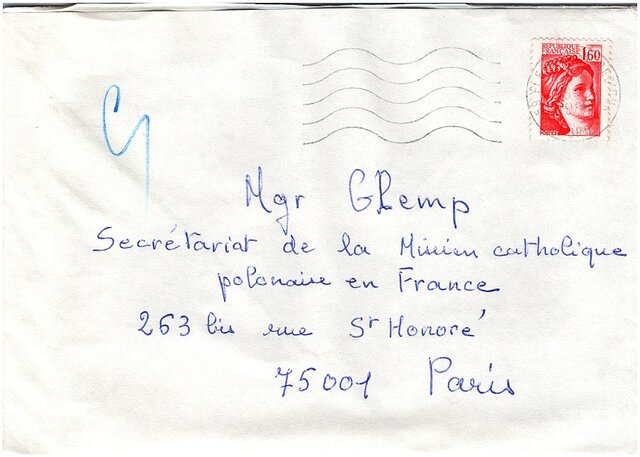 REPUBLIQUE
FRANCAISE 1,60
Mgr Glemp
Secrétariat de la Mission catholique
polonaise en France
263 bis rue St Honoré
75001 Paris